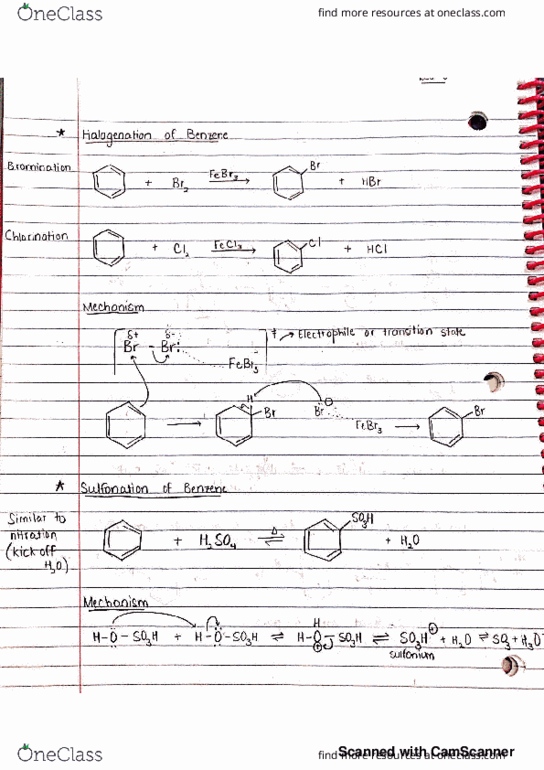 OneClass
find more resources at oneclass.com
* Halogenation of Benzene
Bromination
+ Br₂ FeBr₃ Br + HBr
Chlorination
+ Cl₂ FeCl₃ Cl + HCl
Mechanism
δ+ δ-
Br - Br: FeBr₃ ‡ → Electrophile or transition state
H Br Br FeBr₃ Br
* Sulfonation of Benzene
Similar to nitration (kick off H₂O)
+ H₂SO₄ Δ ⇌ SO₃H + H₂O
Mechanism
H-O-SO₃H + H-O-SO₃H ⇌ H-O SO₃H ⇌ SO₃H⊕ + H₂O ⇌ SO₃ + H₃O
H
⊕
sulfonium
OneClass
find more resources at oneclass.com
Scanned with CamScanner